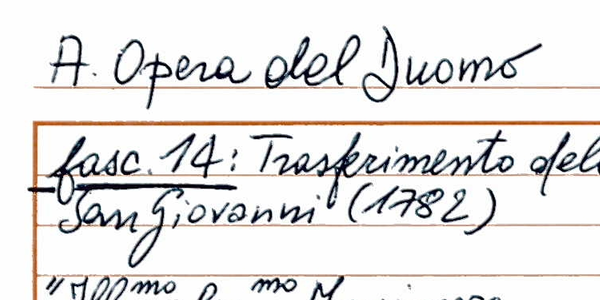 A. Opera del Duomo
fasc. 14: Trasferimento del
San Giovanni (1782)